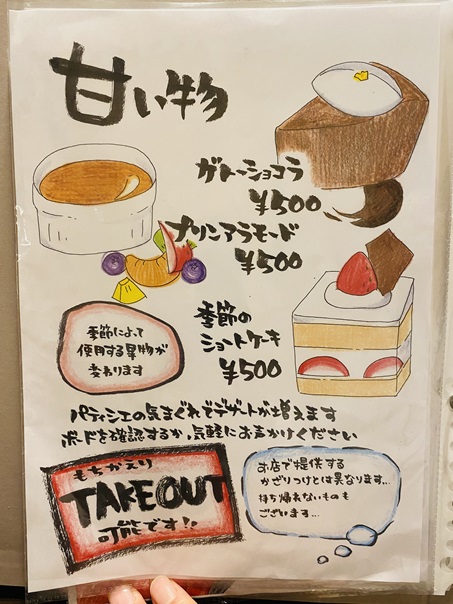 甘い物
ガトーショコラ
¥500
プリンアラモード
¥500
季節の
ショートケーキ
¥500
季節によって
使用する果物が
変わります
パティシエの気まぐれでデザートが増えます
ボードを確認するか、気軽にお声かけください
もちかえり
TAKEOUT
可能です!!
お店で提供する
かざりつけとは異なります...
持ち帰れないものも
ございます...